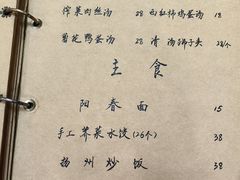 榨菜肉丝汤 18 西红柿鸡蛋汤 18
菊花鸭蛋汤 28 清汤狮子头 28/个
主食
阳春面 15
手工荠菜水饺(26个) 38
扬州炒饭 38